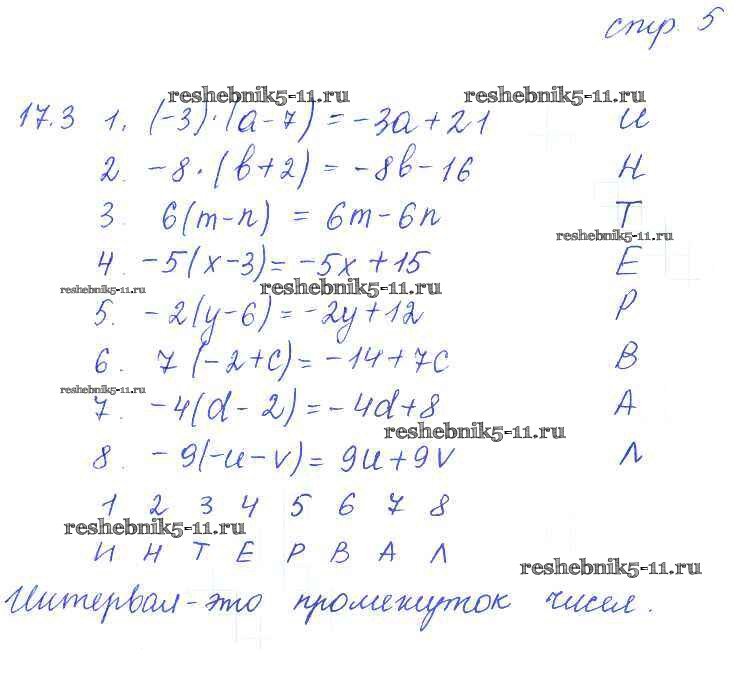 стр. 5
reshebnik5-11.ru reshebnik5-11.ru
17.3 1. (-3)·(a-7) = -3a+21 И
2. -8·(b+2) = -8b-16 Н
3. 6(m-n) = 6m-6n Т
reshebnik5-11.ru
4. -5(x-3)= -5x+15 Е
reshebnik5-11.ru reshebnik5-11.ru
5. -2(y-6)= -2y+12 Р
6. 7(-2+c)= -14+7c В
reshebnik5-11.ru
7. -4(d-2)= -4d+8 А
reshebnik5-11.ru
8. -9(-u-v)= 9u+9v Л
1 2 3 4 5 6 7 8
reshebnik5-11.ru
И Н Т Е Р В А Л
reshebnik5-11.ru
Интервал-это промежуток чисел.